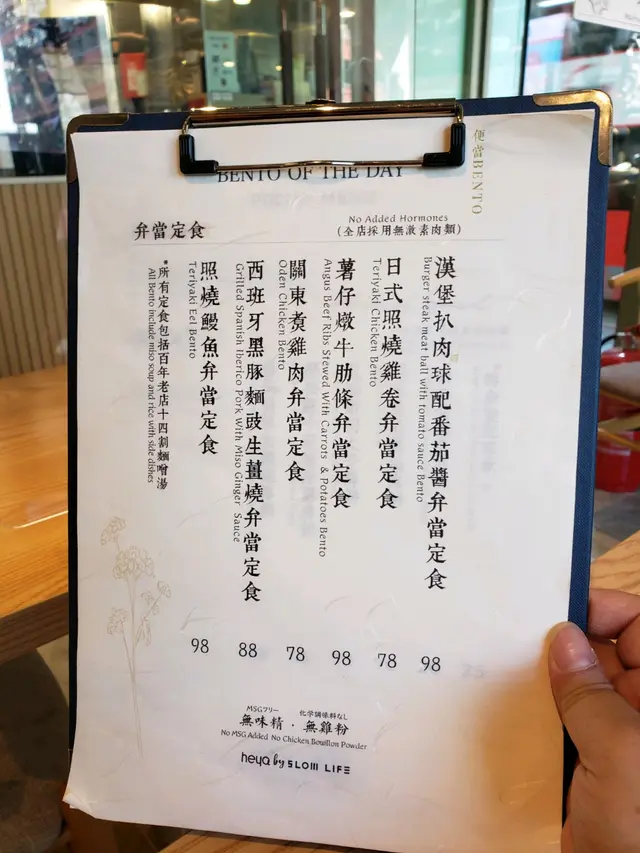 BENTO OF THE DAY
便當BENTO
弁當定食
No Added Hormones
(全店採用無激素肉類)
漢堡扒肉球配番茄醬弁當定食
Burger steak meat ball with tomato sauce Bento
98
日式照燒雞卷弁當定食
Teriyaki Chicken Bento
78
薯仔燉牛肋條弁當定食
Angus Beef Ribs Stewed With Carrots & Potatoes Bento
98
關東煮雞肉弁當定食
Oden Chicken Bento
78
西班牙黑豚麵豉生薑燒弁當定食
Grilled Spanish Iberico Pork With Miso Ginger Sauce
88
照燒鰻魚弁當定食
Teriyaki Eel Bento
98
*所有定食包括百年老店十四割麵噌湯
All Bento include miso soup and rice with side dishes
MSGフリー 化学調味料なし
無味精 · 無雞粉
No MSG Added No Chicken Bouillon Powder
heya by SLOW LIFE